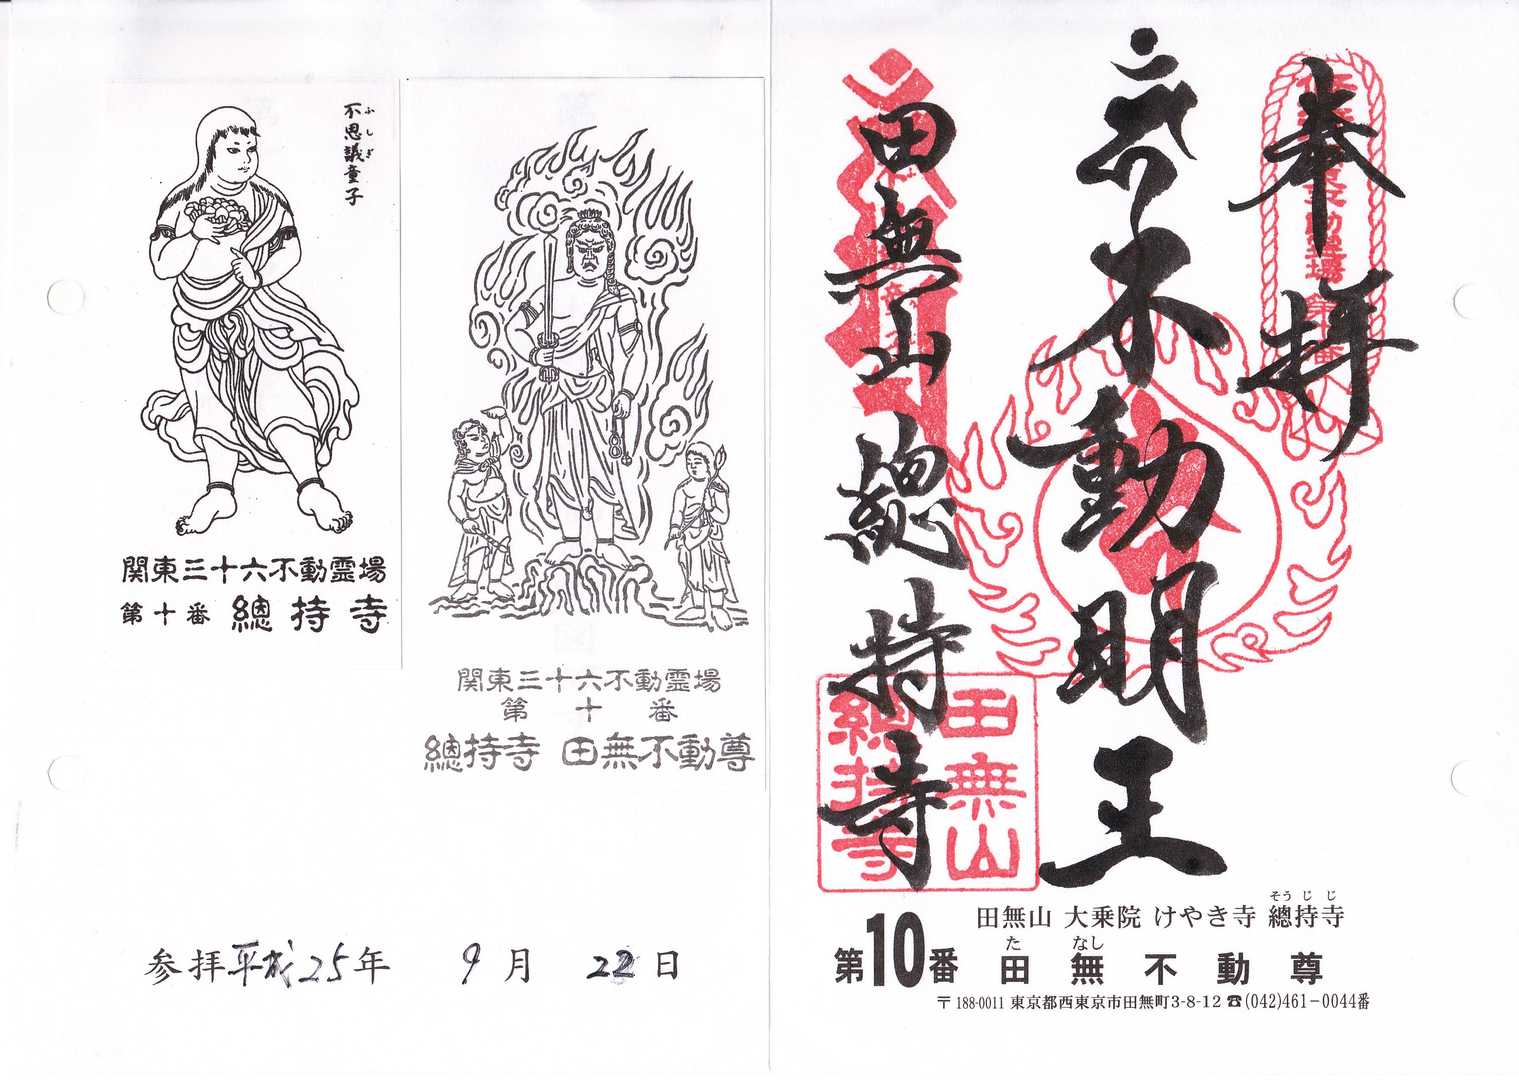 不思議童子
ふしぎ
関東三十六不動霊場
第十番 總持寺
関東三十六不動霊場
第十番
總持寺 田無不動尊
参拝平成25年 9月 22日
奉拝
不動明王
田無山總持寺
田無山
總持寺
田無山 大乗院 けやき寺 總持寺
そうじじ
第10番 田無不動尊
た なし
〒188-0011 東京都西東京市田無町3-8-12 ☎(042)461-0044番